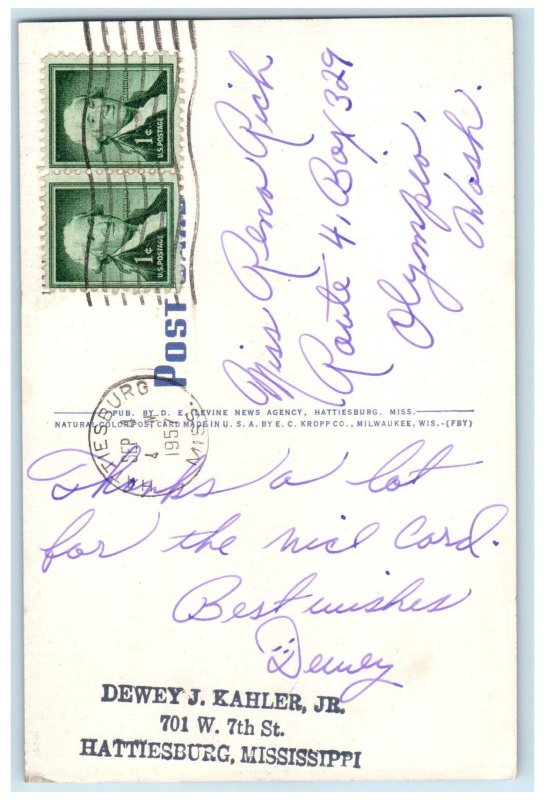 1¢
U.S. POSTAGE
1¢
U.S. POSTAGE
POST CARD
Miss Rena Rich
Route 4, Box 329
Olympia,
Wash.
HATTIESBURG
MISS.
SEP
4
195
PUB. BY D. E. LEVINE NEWS AGENCY, HATTIESBURG, MISS.
NATURAL COLOR POST CARD MADE IN U. S. A. BY E. C. KROPP CO., MILWAUKEE, WIS.-(FBY)
Thanks a lot
for the nice card.
Best wishes
Dewey
DEWEY J. KAHLER, JR.
701 W. 7th St.
HATTIESBURG, MISSISSIPPI